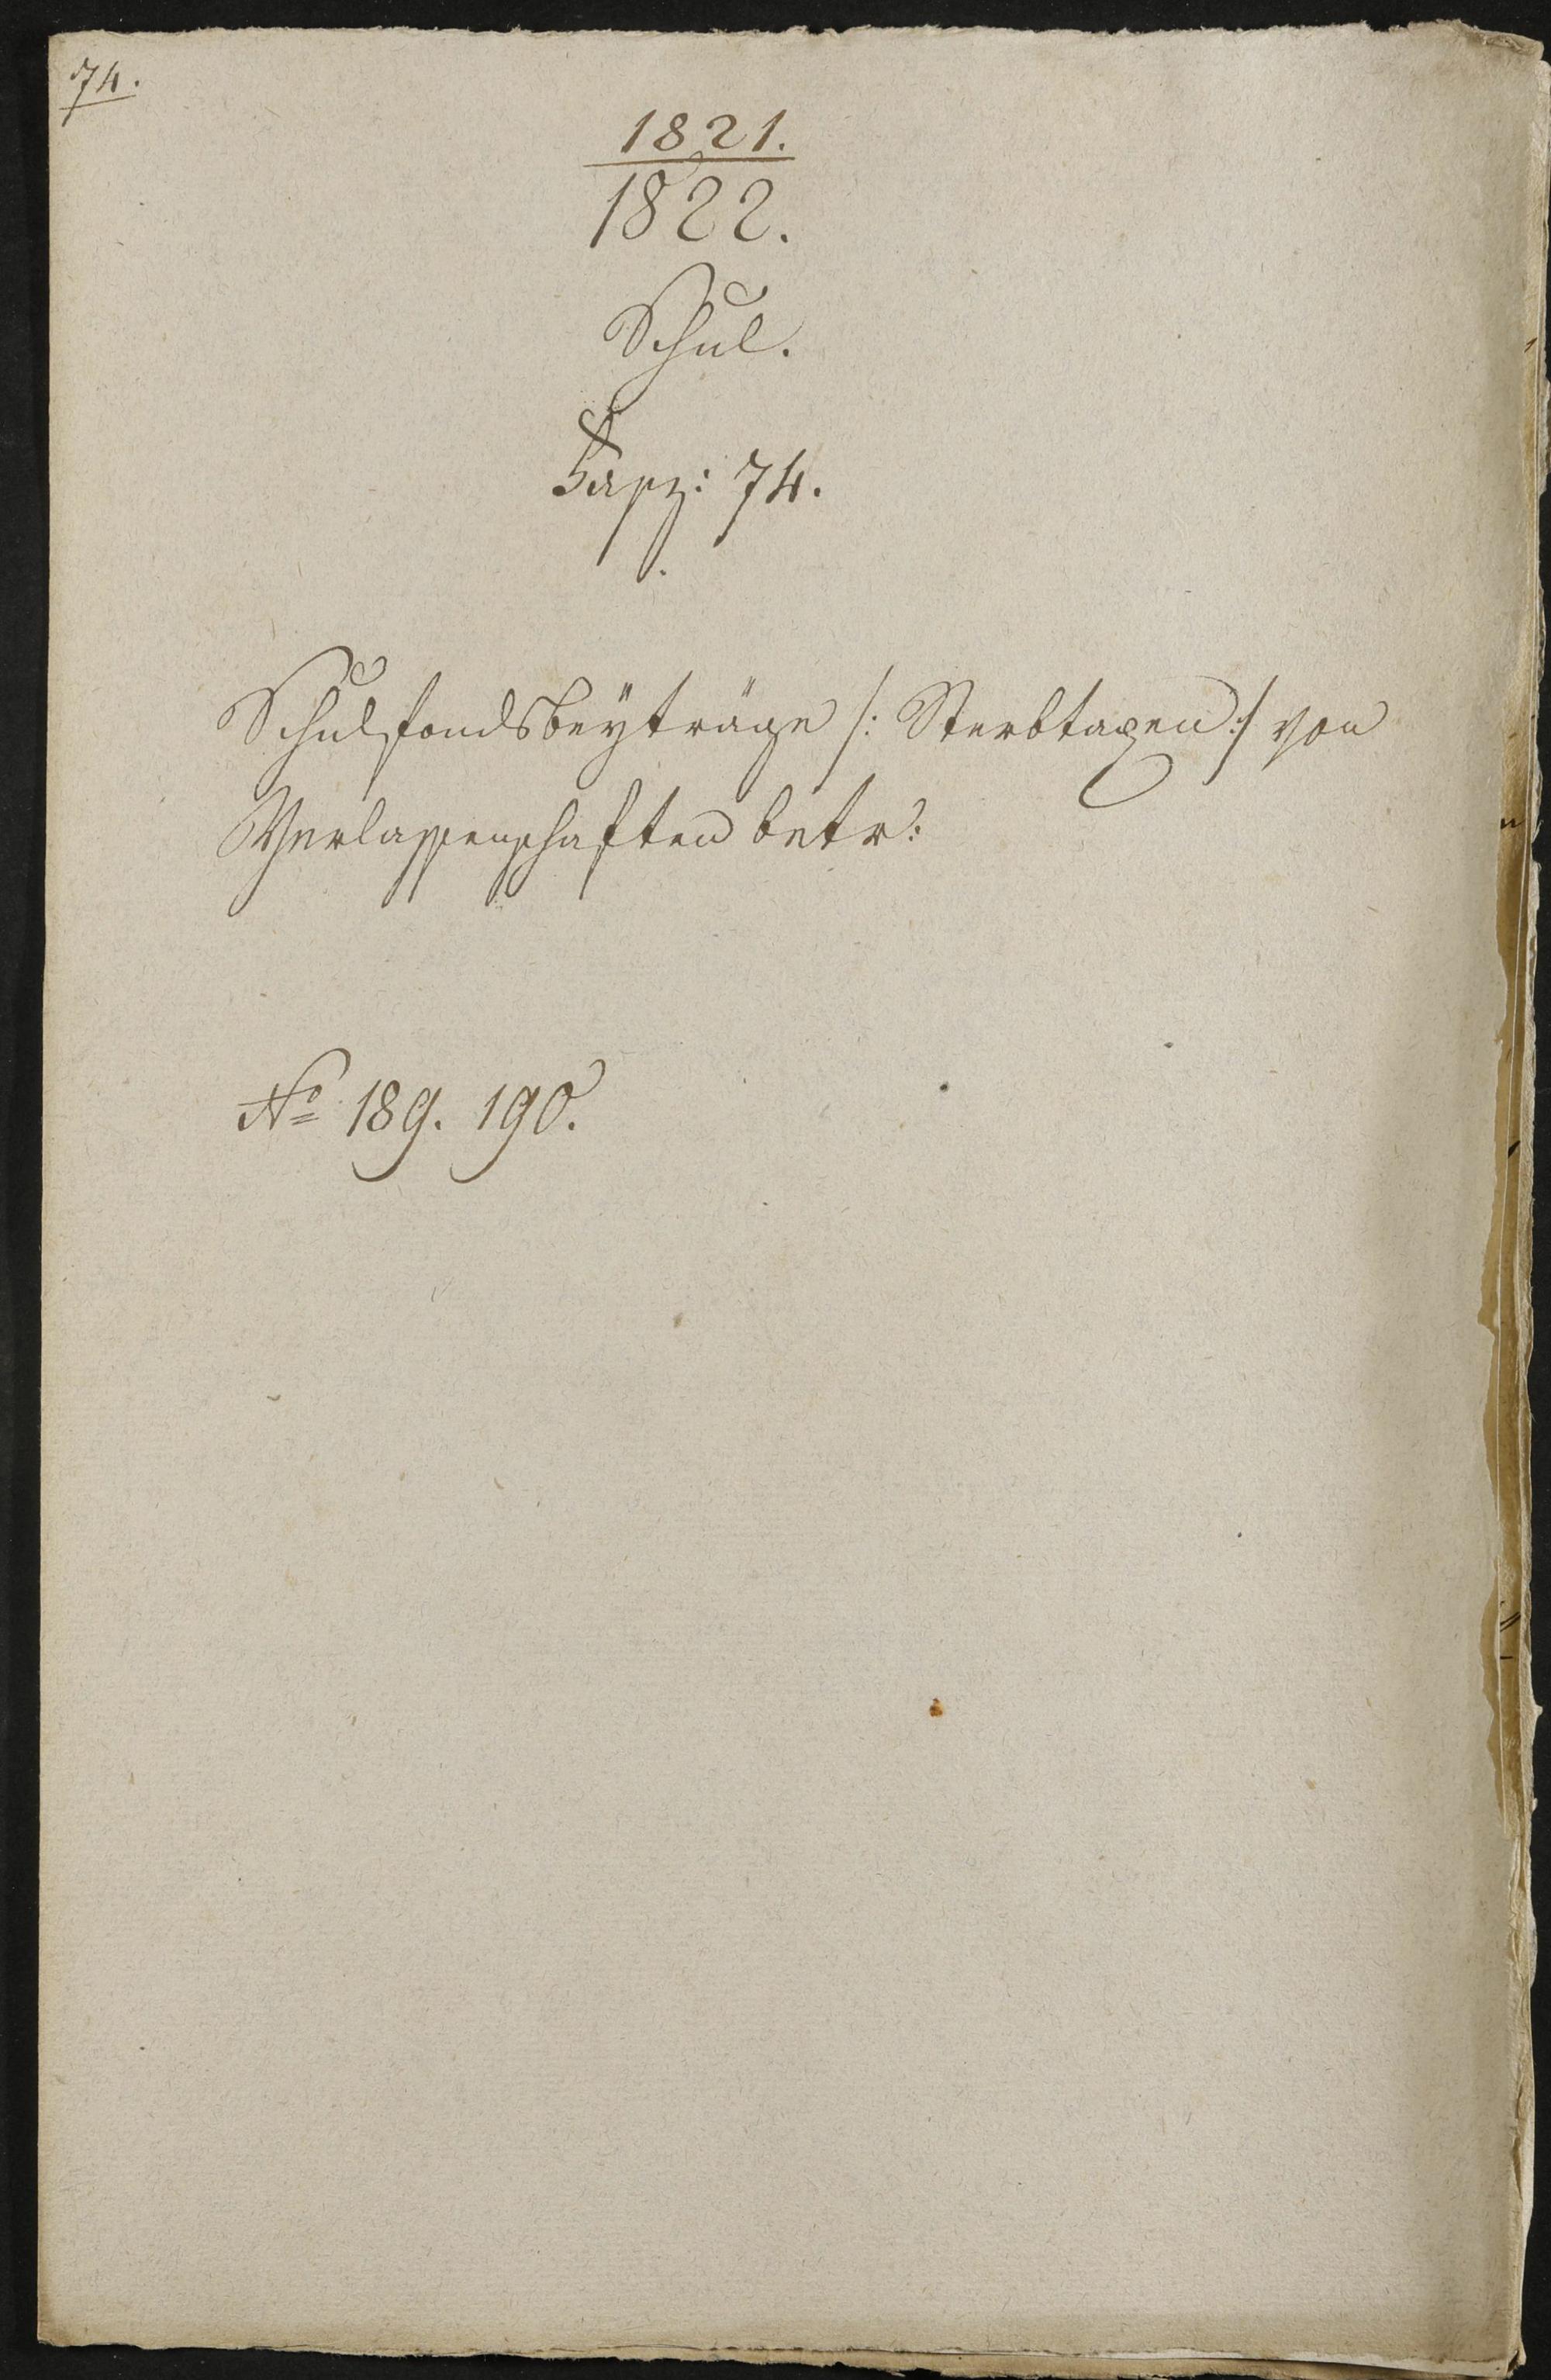 74.
1821.
1822.
Schul.
Fasz: 74.
Schulfondsbeyträge /: Sterbtaxen :/ von
Verlassenschaften betr:
No 189. 190.